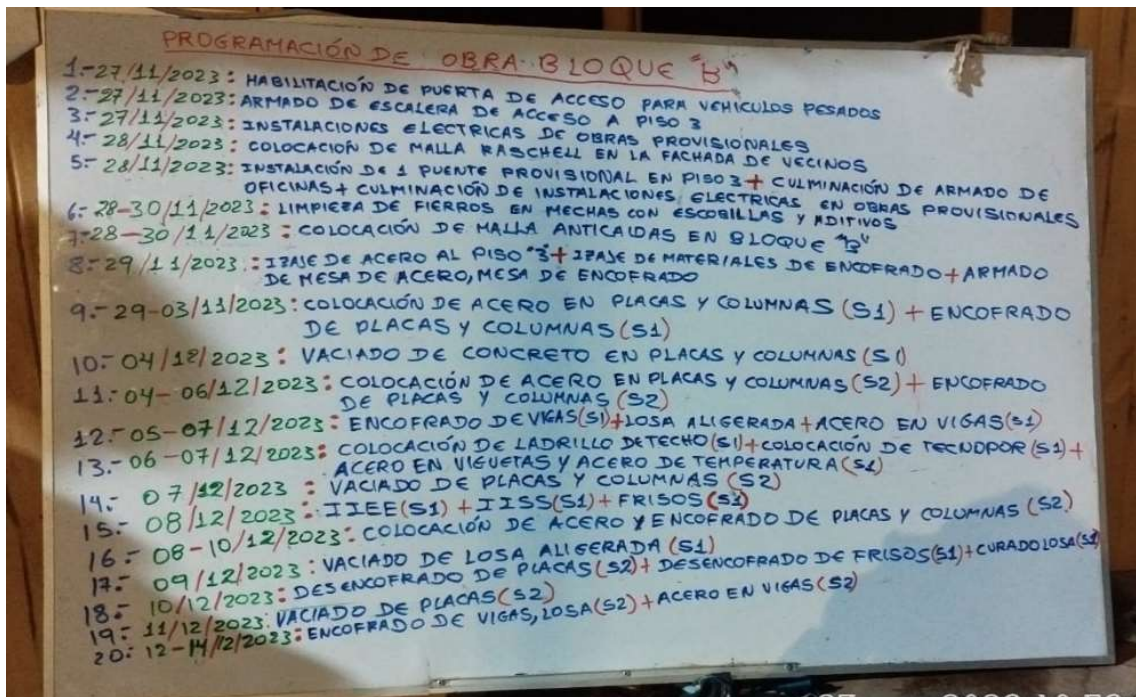 PROGRAMACIÓN DE OBRA BLOQUE "B"
1.-27/11/2023: HABILITACIÓN DE PUERTA DE ACCESO PARA VEHICULOS PESADOS
2.-27/11/2023: ARMADO DE ESCALERA DE ACCESO A PISO 3
3.-27/11/2023: INSTALACIONES ELECTRICAS DE OBRAS PROVISIONALES
4.-28/11/2023: COLOCACIÓN DE MALLA RASCHELL EN LA FACHADA DE VECINOS
5.-28/11/2023: INSTALACIÓN DE 1 PUENTE PROVISIONAL EN PISO 3 + CULMINACIÓN DE ARMADO DE
OFICINAS + CULMINACIÓN DE INSTALACIONES ELECTRICAS EN OBRAS PROVISIONALES
6.-28-30/11/2023: LIMPIEZA DE FIERROS EN MECHAS CON ESCOBILLAS Y ADITIVOS
7.-28-30/11/2023: COLOCACIÓN DE MALLA ANTICAIDAS EN BLOQUE "B"
8.-29/11/2023.: IZAJE DE ACERO AL PISO "3 + IZAJE DE MATERIALES DE ENCOFRADO + ARMADO
DE MESA DE ACERO, MESA DE ENCOFRADO
9.-29-03/11/2023: COLOCACIÓN DE ACERO EN PLACAS Y COLUMNAS (S1) + ENCOFRADO
DE PLACAS Y COLUMNAS (S1)
10.- 04/12/2023: VACIADO DE CONCRETO EN PLACAS Y COLUMNAS (S1)
11.- 04-06/12/2023: COLOCACIÓN DE ACERO EN PLACAS Y COLUMNAS (S2) + ENCOFRADO
DE PLACAS Y COLUMNAS (S2)
12.- 05-07/12/2023: ENCOFRADO DE VIGAS(S1)+LOSA ALIGERADA+ACERO EN VIGAS(S1)
13.- 06-07/12/2023: COLOCACIÓN DE LADRILLO DE TECHO (S1)+COLOCACIÓN DE TECNOPOR (S1)+
ACERO EN VIGUETAS Y ACERO DE TEMPERATURA (S1)
14.- 07/12/2023: VACIADO DE PLACAS Y COLUMNAS (S2)
15.- 08/12/2023: IIEE(S1) + IISS(S1) + FRISOS (S1)
16.- 08-10/12/2023: COLOCACIÓN DE ACERO Y ENCOFRADO DE PLACAS Y COLUMNAS (S2)
17.- 09/12/2023: VACIADO DE LOSA ALIGERADA (S1)
18.- 10/12/2023: DESENCOFRADO DE PLACAS (S2)+ DESENCOFRADO DE FRISOS(S1)+CURADO LOSA(S1)
19.- 11/12/2023: VACIADO DE PLACAS(S2)
20.- 12-14/12/2023: ENCOFRADO DE VIGAS, LOSA (S2) + ACERO EN VIGAS (S2)